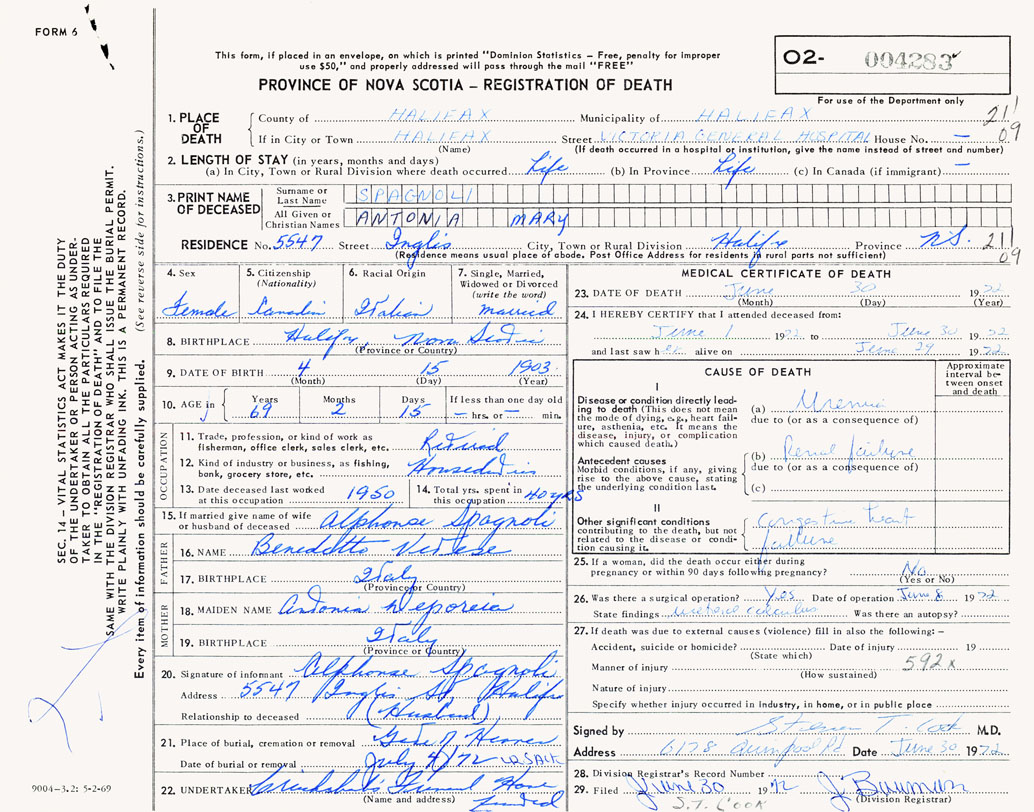 FORM 6
This form, if placed in an envelope, on which is printed "Dominion Statistics – Free, penalty for improper
use $50," and properly addressed will pass through the mail "FREE"
PROVINCE OF NOVA SCOTIA – REGISTRATION OF DEATH
O2- 004283
For use of the Department only
1. PLACE OF DEATH
County of HALIFAX Municipality of HALIFAX 211
If in City or Town HALIFAX Street VICTORIA GENERAL HOSPITAL House No. – 09
(Name) (If death occurred in a hospital or institution, give the name instead of street and number)
2. LENGTH OF STAY (in years, months and days)
(a) In City, Town or Rural Division where death occurred Life (b) In Province Life (c) In Canada (if immigrant) –
3. PRINT NAME OF DECEASED
Surname or Last Name SPAGNOLI
All Given or Christian Names ANTONIA MARY
RESIDENCE No. 5547 Street Inglis City, Town or Rural Division Halifx Province N.S. 211
(Residence means usual place of abode. Post Office Address for residents in rural parts not sufficient) 09
4. Sex Female
5. Citizenship (Nationality) Canadin
6. Racial Origin Italian
7. Single, Married, Widowed or Divorced (write the word) married
8. BIRTHPLACE Halifx, Nova Scotia
(Province or Country)
9. DATE OF BIRTH 4 15 1903
(Month) (Day) (Year)
10. AGE in Years 69 Months 2 Days 15 If less than one day old – hrs. or – min.
OCCUPATION
11. Trade, profession, or kind of work as fisherman, office clerk, sales clerk, etc. Retired
12. Kind of industry or business, as fishing, bank, grocery store, etc.
13. Date deceased last worked at this occupation 1950
14. Total yrs. spent in this occupation 40 yrs
15. If married give name of wife or husband of deceased Alphonse Spagnoli
FATHER
16. NAME Benedetto
17. BIRTHPLACE Italy
(Province or Country)
MOTHER
18. MAIDEN NAME Antonia
19. BIRTHPLACE Italy
(Province or Country)
20. Signature of informant Alphonse Spagnoli
Address 5547 Inglis St, Halifx
Relationship to deceased (Husband)
21. Place of burial, cremation or removal Gate of Heaven
Date of burial or removal July 4/72
22. UNDERTAKER Funeral Home
(Name and address) Limited
MEDICAL CERTIFICATE OF DEATH
23. DATE OF DEATH June 30 1972
(Month) (Day) (Year)
24. I HEREBY CERTIFY that I attended deceased from:
June 1 1972 to June 30 1972
and last saw her alive on June 29 1972
CAUSE OF DEATH
Approximate interval between onset and death
I
Disease or condition directly leading to death (This does not mean the mode of dying, e.g., heart failure, asthenia, etc. It means the disease, injury, or complication which caused death.)
(a) Uremia
due to (or as a consequence of)
Antecedent causes
Morbid conditions, if any, giving rise to the above cause, stating the underlying condition last.
(b) Renal failure
due to (or as a consequence of)
(c)
II
Other significant conditions contributing to the death, but not related to the disease or condition causing it.
Congestive heart
failure
25. If a woman, did the death occur either during pregnancy or within 90 days following pregnancy? No
(Yes or No)
26. Was there a surgical operation? Yes Date of operation June 8 1972
State findings ureteral calculus Was there an autopsy?
27. If death was due to external causes (violence) fill in also the following: –
Accident, suicide or homicide? Date of injury 19
(State which)
Manner of injury 592 x
(How sustained)
Nature of injury
Specify whether injury occurred in Industry, in home, or in public place
Signed by T. Cook M.D.
Address 6178 Rd Date June 30 1972
28. Division Registrar's Record Number
29. Filed June 30 1972 J. Bauman
(Division Registrar)
S.T. COOK
9004-3.2: 5-2-69
SEC. 14 – VITAL STATISTICS ACT MAKES IT THE DUTY
OF THE UNDERTAKER OR PERSON ACTING AS UNDER-
TAKER TO OBTAIN ALL THE PARTICULARS REQUIRED
IN THE "REGISTRATION OF DEATH" AND TO FILE THE
SAME WITH THE DIVISION REGISTRAR WHO SHALL ISSUE THE BURIAL PERMIT.
WRITE PLAINLY WITH UNFADING INK. THIS IS A PERMANENT RECORD.
Every item of information should be carefully supplied. (See reverse side for instructions.)